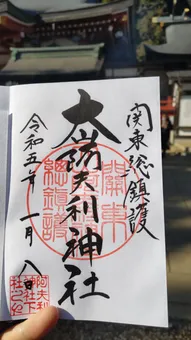 関東総鎮護
大山阿夫利神社
令和五年一月八日
関東
総鎮護
阿夫利
神社下
社之印